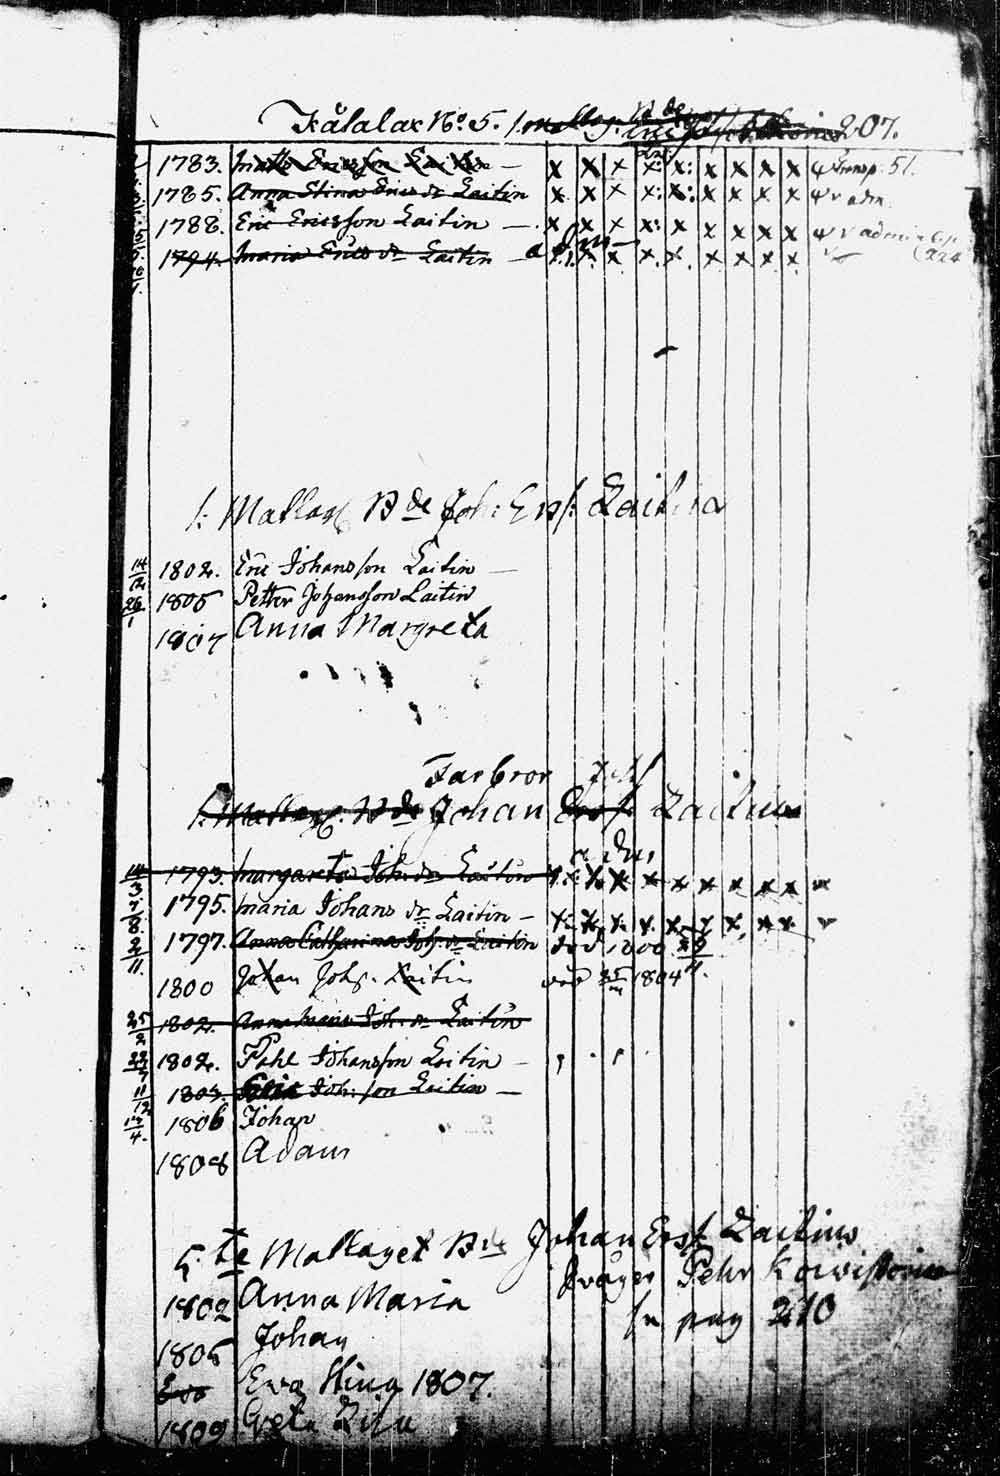 Kålalax No. 5. 207.
1783. Matts Ericsson Laitin — x x x x: x: x x x x Transp. 51.
1785. Anna Stina Erics dr Laitin x x x x: x: x x x x v adm.
1788. Eric Ericsson Laitin — x x x x: x x x x x v admi
1794. Maria Erics dr Laitin — x x x x x x x x x 224
1: Matlag Bde Joh: Ersf: Laitin
14/12 1802. Eric Johansson Laitin —
26/1 1805 Petter Johansson Laitin
1807 Anna Margreta
Farbror
1: Matlag. Bde Johan Ersf. Laitin
14/3 1793. Margareta Joh. dr Laitin x x x x x x x x x
7/8. 1795. Maria Johans dr Laitin — x x x x x x x x x
2/11. 1797. Anna Catharina Joh. dr Laitin död 1808
1800 Johan Johs. Laitin 1804
25/2 1802. Anna Maria Joh. dr Laitin
22/7 1802. Påhl Johansson Laitin —
11/12 1803. Eric Joh:son Laitin —
17/4. 1806 Johan
1808 Adam
5te Matlaget Bde Johan Ersf. Laitins
svåger Pehr Koivistoinen
1802 Anna Maria
se pag 210
1805 Johan
Eva Eva Stina 1807.
1809 Greta Lisa